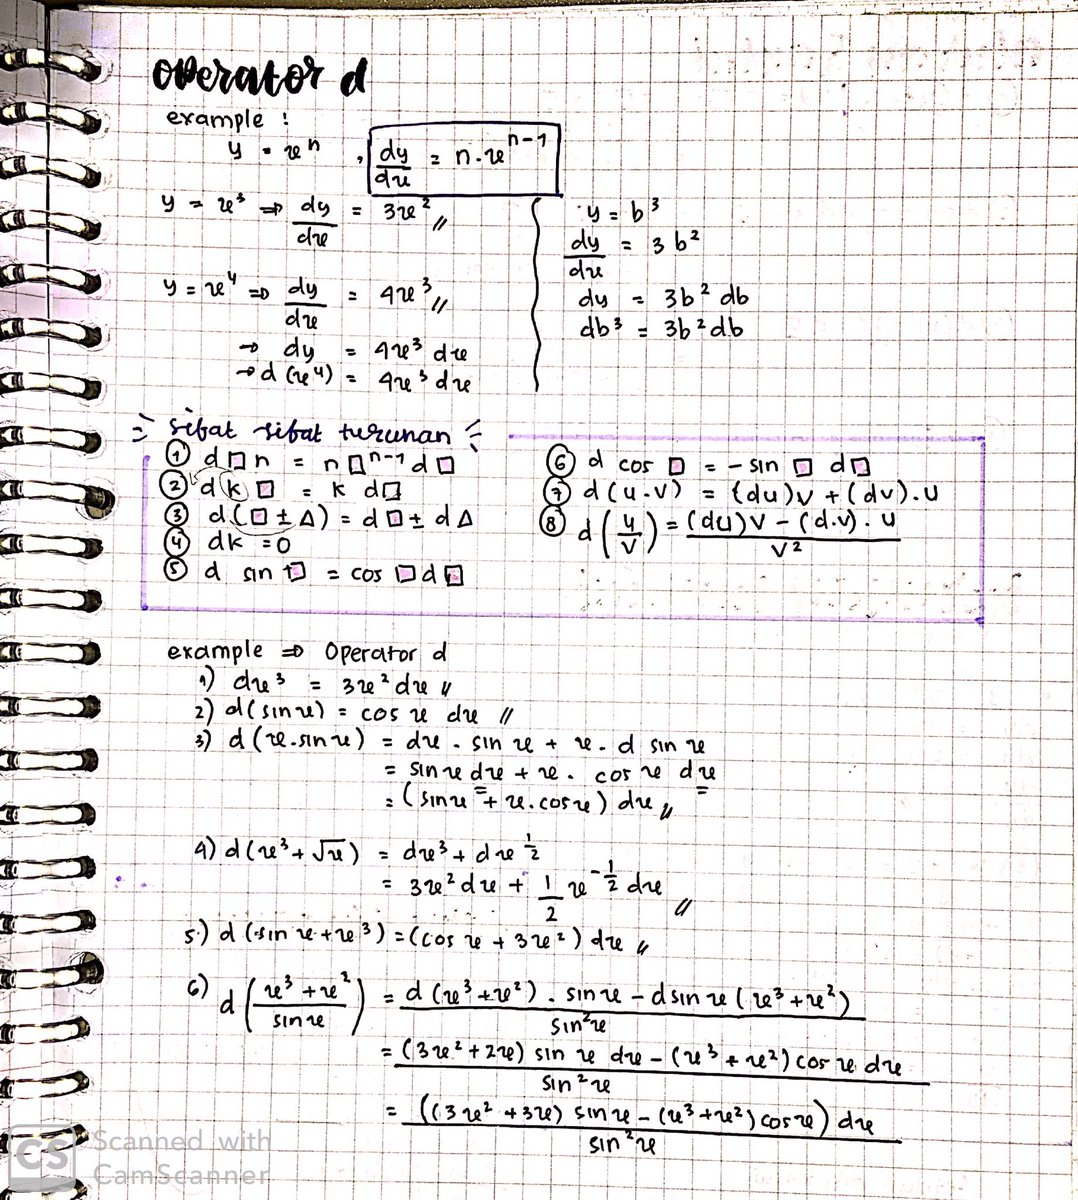 operator d
example :
y = x^n , dy/dx = n.x^(n-1)
y = x^3 ⇒ dy/dx = 3x^2 //
y = x^4 ⇒ dy/dx = 4x^3 //
→ dy = 4x^3 dx
→ d (x^4) = 4x^3 dx
y = b^3
dy/dx = 3 b^2
dy = 3b^2 db
db^3 = 3b^2 db
sifat sifat turunan
① d□n = n□^(n-1) d□
② dk□ = k d□
③ d(□ ± Δ) = d□ ± dΔ
④ dk = 0
⑤ d sin □ = cos □ d□
⑥ d cos □ = - sin □ d□
⑦ d(u.v) = (du)v + (dv).u
⑧ d(u/v) = ((du)v - (d.v).u)/v^2
example ⇒ Operator d
1) dx^3 = 3x^2 dx //
2) d(sin x) = cos x dx //
3) d(x.sin x) = dx . sin x + x . d sin x
= sin x dx + x . cos x dx
= (sin x + x.cos x) dx //
4) d(x^3 + √x) = dx^3 + dx^(1/2)
= 3x^2 dx + 1/2 x^(-1/2) dx //
5.) d (sin x + x^3) = (cos x + 3x^2) dx //
6) d((x^3 + x^2)/sin x) = (d(x^3 + x^2) . sin x - d sin x (x^3 + x^2))/sin^2 x
= ((3x^2 + 2x) sin x dx - (x^3 + x^2) cos x dx)/sin^2 x
= (((3x^2 + 3x) sin x - (x^3 + x^2) cos x) dx)/sin^2 x
CS Scanned with
CamScanner